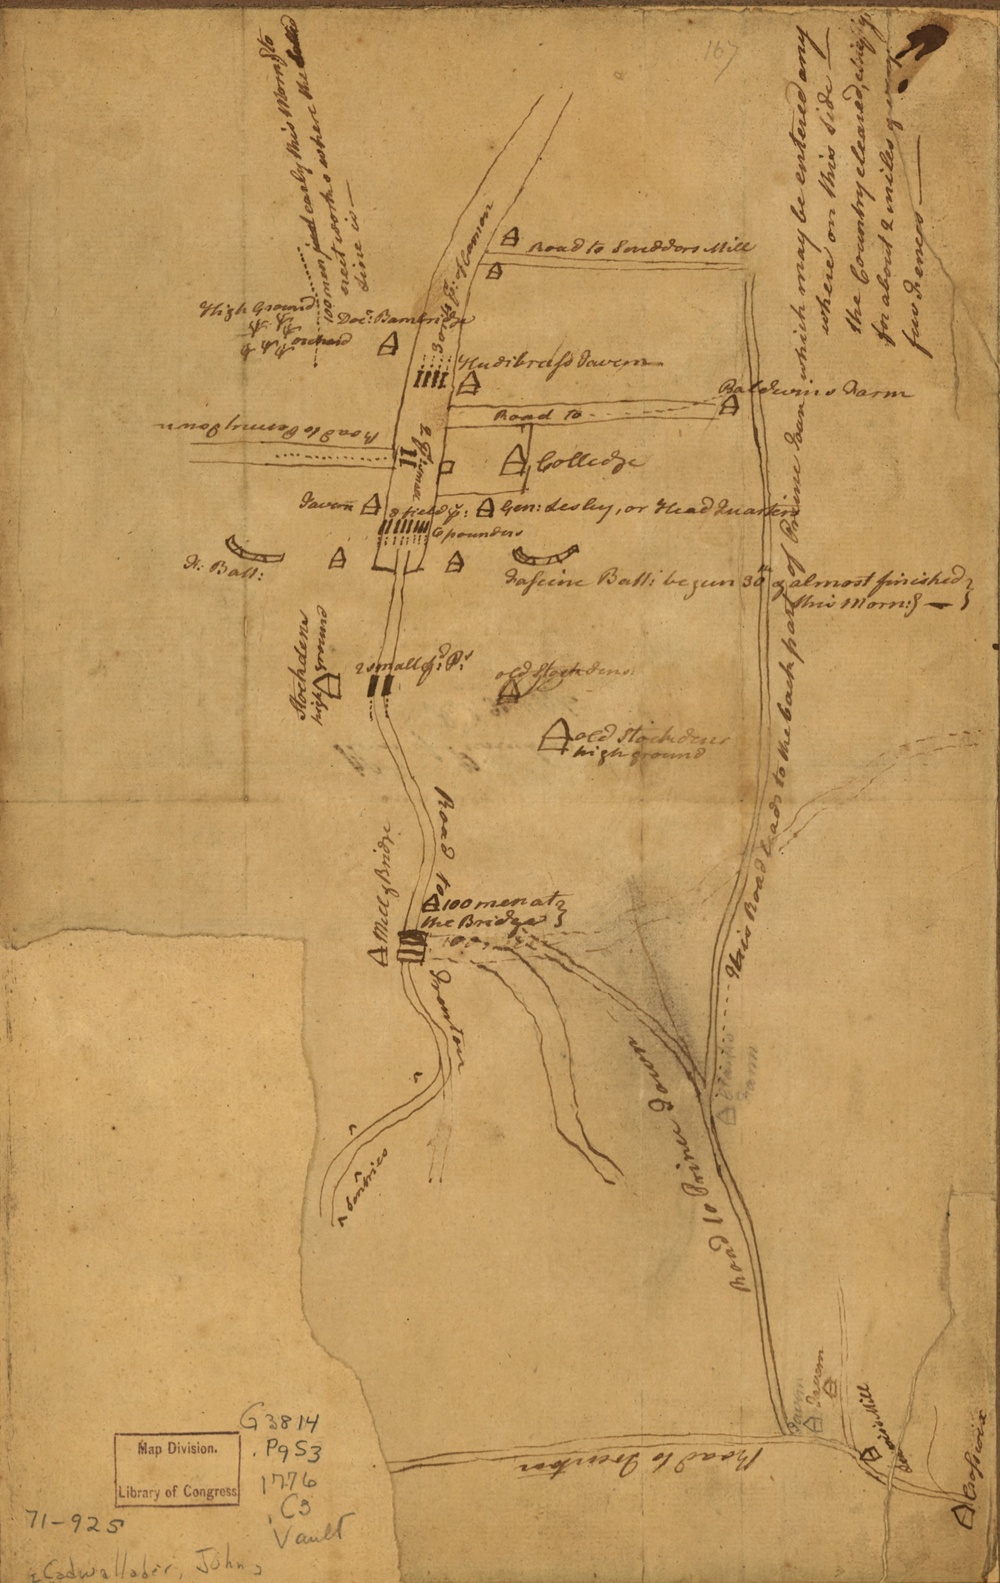 167
100 men early this Morng to
erect works where the dotted
line is —
which may be entered any
where on this side —
the Country cleared, chiefly
for about 2 miles
few Fences —
This Road leads to the back part of Prince Town
Road to Scudders Mill
High Ground
orchard
Docr: Bambridge
Hudibrass Tavern
Baldwins Farm
Road to
Road to Pennytown
Colledge
Tavern
8 field ps:
6 pounders
Gen: Lesley, or Head Quarters
N: Batt:
Fascine Batt: begun 30th & almost finished
this Morng —
Stockdens
high ground
2 small fd: Ps
old Stockdens
old Stockdens
high ground
Road to
Trenton
Mill & Bridge
100 men at
the Bridge
100
Farm
Road to Prince Town
Sentries
Tavern
Tavern
Mill
Road to Trenton
Crosswix
Map Division.
Library of Congress
G3814
.P9S3
1776
.C3
Vault
71-925
Cadwallader, John